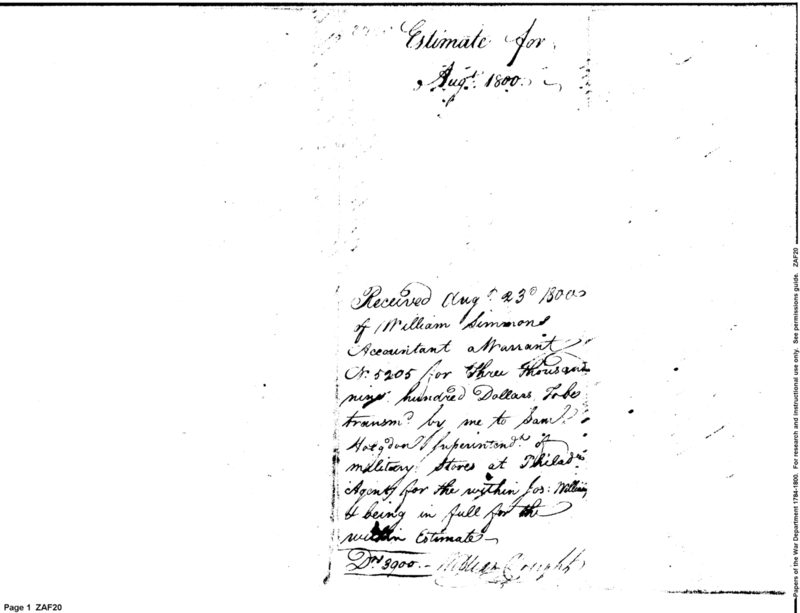 Estimate for
Augt. 1800.
Received Augt. 23d 1800
of William Simmons
Accountant a Warrant
No. 5205 for Three Thousand
nine hundred Dollars, To be
transmd. by me to Saml.
Hodgdon Superintendt. of
military Stores at Philada.
Agent for the within Jos: Williams
& being in full for the
within Estimate
Drs. 3900.-
Page 1 ZAF20
Papers of the War Department 1784-1800. For research and instructional use only. See permissions guide. ZAF20